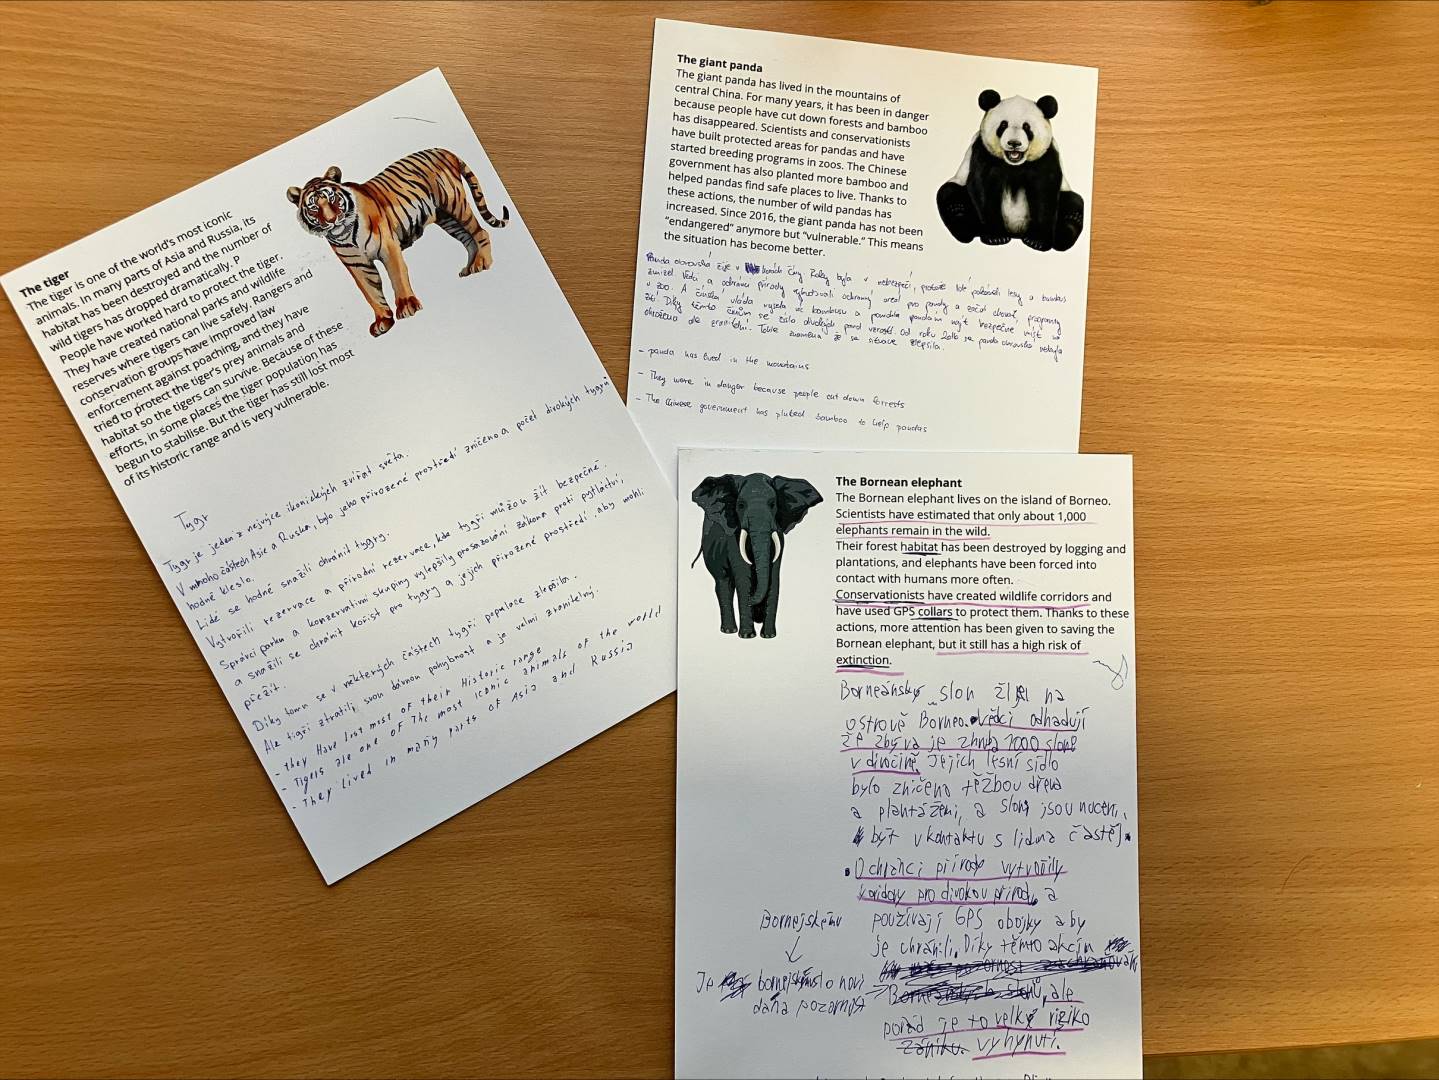 The tiger
The tiger is one of the world's most iconic
animals. In many parts of Asia and Russia, its
habitat has been destroyed and the number of
wild tigers has dropped dramatically. P
People have worked hard to protect the tiger.
They have created national parks and wildlife
reserves where tigers can live safely. Rangers and
conservation groups have improved law
enforcement against poaching, and they have
tried to protect the tiger's prey animals and
habitat so the tigers can survive. Because of these
efforts, in some places the tiger population has
begun to stabilise. But the tiger has still lost most
of its historic range and is very vulnerable.
Tygr
Tygr je jeden z nejvíce ikonických zvířat světa.
V mnoho částech Asie a Ruska, bylo jeho přirozené prostředí zničeno a počet divokých tygrů
hodně kleslo.
Lidé se hodně snažili chránit tygry.
Vytvořili rezervace a přírodní rezervace, kde tygři můžou žít bezpečně.
Správci parku a konzervativní skupiny vylepšily prosazování zákona proti pytláctví,
a snažili se chránit kořist pro tygry a jejich přirozené prostředí, aby mohli
přežít.
Díky tomu se v některých částech tygří populace zlepšila.
Ale tigři ztratili svou dávnou pohybnost a je velmi zranitelný.
- they Have lost most of their Historic range
- Tigers are one of The most Iconic animals of the world
- They lived in many parts of Asia and Russia
The giant panda
The giant panda has lived in the mountains of
central China. For many years, it has been in danger
because people have cut down forests and bamboo
has disappeared. Scientists and conservationists
have built protected areas for pandas and have
started breeding programs in zoos. The Chinese
government has also planted more bamboo and
helped pandas find safe places to live. Thanks to
these actions, the number of wild pandas has
increased. Since 2016, the giant panda has not been
"endangered" anymore but "vulnerable." This means
the situation has become better.
Panda obrovská žije v horách Číny. Roky byla v nebezpečí, protože lidé pokáceli lesy a bambus
zmizel. Vědci a ochránci přírody vybudovali ochranný areál pro pandy a začal chovat, programy
v zoo. A čínská vláda vysela víc bambusu a pomohla pandám najít bezpečné místo na
žití. Díky těmto činům se číslo divokých pand vzrostl. Od roku 2016 se panda obrovská nebyla
ohrožena ale zranitelní. Tohle znamená že se situace zlepšila.
- panda has lived in the mountains
- They were in danger because people cut down forrests
- The Chinese government has planted bamboo to help pandas
The Bornean elephant
The Bornean elephant lives on the island of Borneo.
Scientists have estimated that only about 1,000
elephants remain in the wild.
Their forest habitat has been destroyed by logging and
plantations, and elephants have been forced into
contact with humans more often.
Conservationists have created wildlife corridors and
have used GPS collars to protect them. Thanks to these
actions, more attention has been given to saving the
Bornean elephant, but it still has a high risk of
extinction.
Borneánský slon žije na
ostrově Borneo. Vědci odhadují
že zbývá je zhruba 1000 slonů
v divočině. Jejich lesní sídlo
bylo zničeno těžbou dřeva
a plantážemi, a sloni jsou nuceni,
být v kontaktu s lidma častěj.
Ochránci přírody vytvořily
koridory pro divokou přírodu a
používají GPS obojky aby
je chránili. Díky těmto akcím
Bornejskému
Je bornejskému slonovi
dána pozornost
Borneánských slonů, ale
pořád je to velký riziko
zániku. vyhynutí.